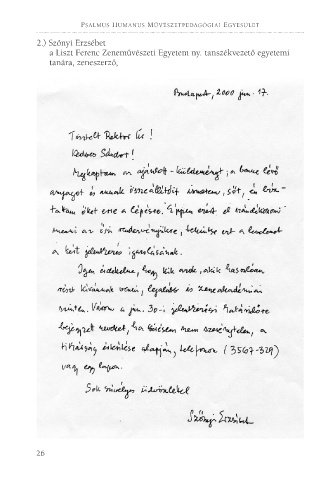 PSALMUS HUMANUS MŰVÉSZETPEDAGÓGIAI EGYESÜLET
2.) Szőnyi Erzsébet
a Liszt Ferenc Zeneművészeti Egyetem ny. tanszékvezető egyetemi
tanára, zeneszerző,
Budapest, 2000 jún. 17.
Tisztelt Rektor Úr!
Kedves Sándor!
Megkaptam az ajánlott küldeményt, a benne lévő
anyagot és annak összeállítóit ismerem, sőt, én biz-
tattam őket erre a lépésre. Éppen ezért el szándékozom
menni az őszi rendezvényükre, tekintse ezt a levelemet
a kért jelentkezés igazolásának.
Igen érdekelne, hogy kik azok, akik hasonlóan
részt kívánnak venni, legalább is zeneakadémiai
szinten. Várom a jún. 30-i jelentkezési határidőre
bejegyzett neveket, ha kérésem nem szerénytelen, a
titkárság értesítése alapján, telefonon (3567-329)
vagy egy lapon.
Sok szívélyes üdvözlettel
Szőnyi Erzsébet
26